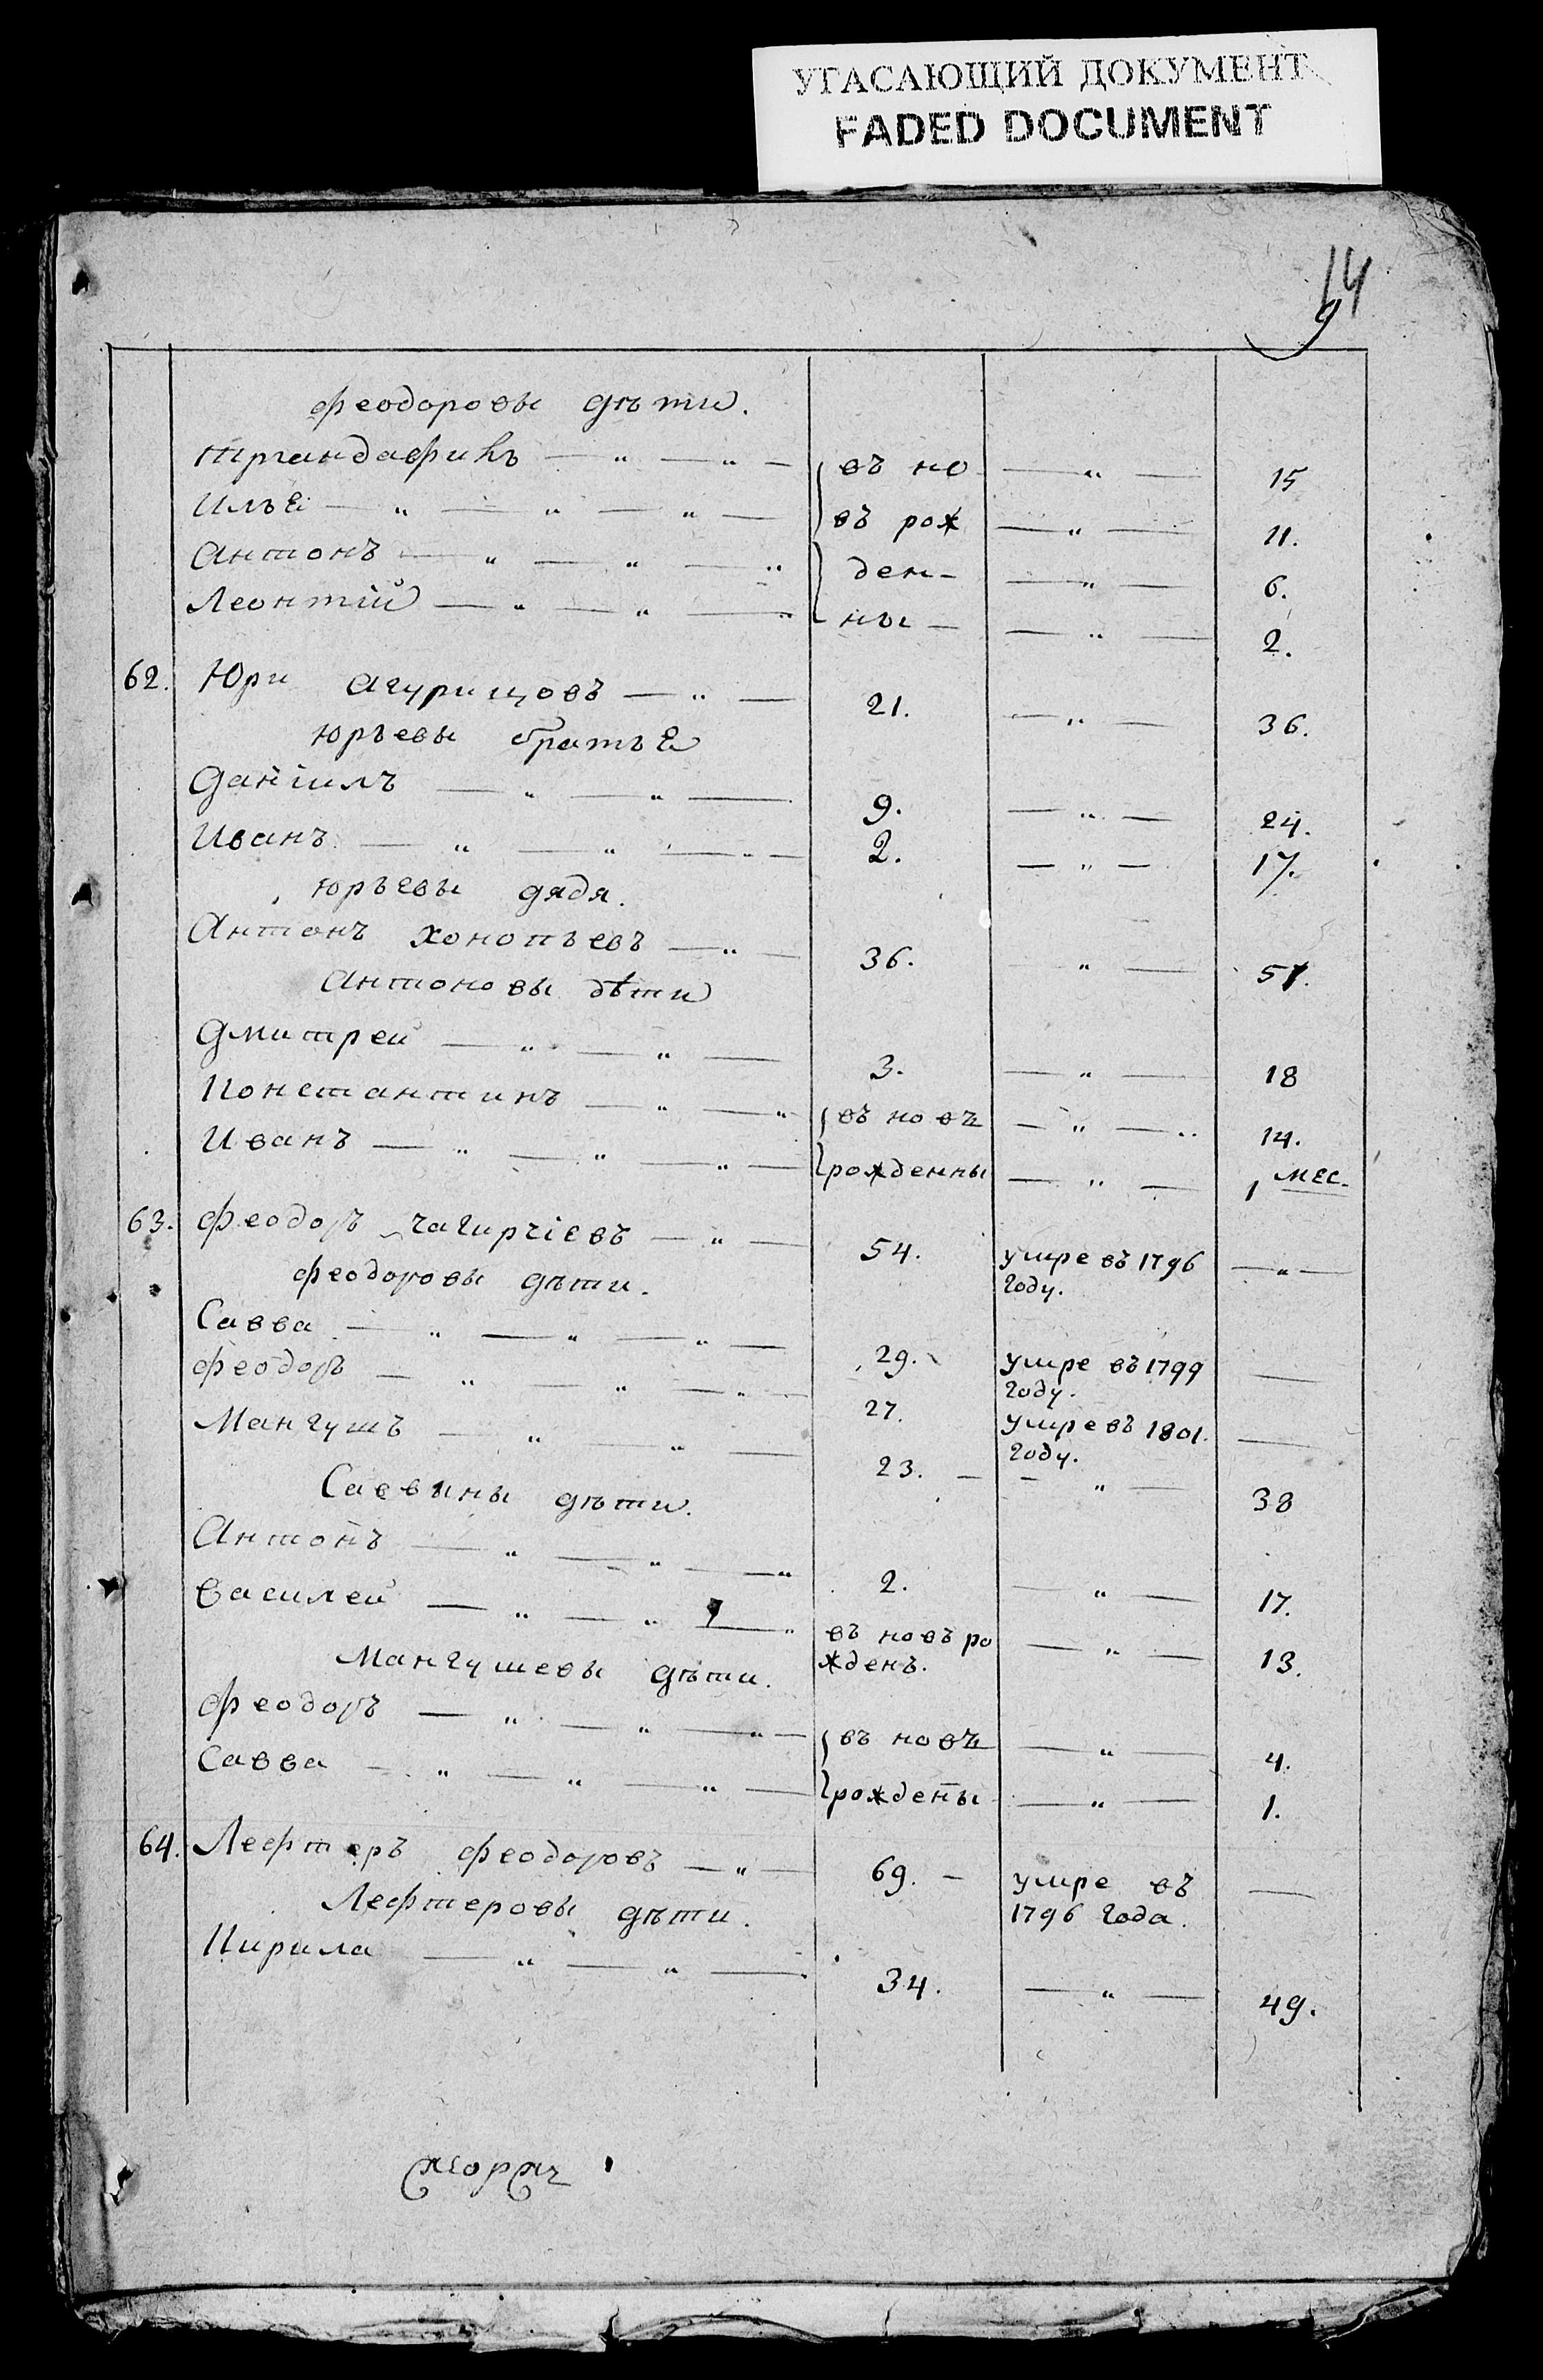 УГАСАЮЩИЙ ДОКУМЕНТ
FADED DOCUMENT
14
9
феодоровы дѣти.
трандафилъ — „ — „ — въ но — „ — 15
Илья — „ — „ — „ — въ рож — „ — 11.
Антонъ — „ — „ — „ ден- — „ — 6.
Леонтiй — „ — „ — „ ны — — „ — 2.
62. Юри Агурицовъ — „ — 21. — „ — 36.
юрьевы братья
Данiилъ — „ — „ — 9. — „ — 24.
Иванъ — „ — „ — „ — 2. — „ — 17.
юрьевы дядя.
Антонъ хонопьевъ — „ — 36. — „ — 51.
Антоновы дѣти
Дмитрей — „ — „ — 3. — „ — 18
Константинъ — „ — „ въ новъ — „ — „ 14.
Иванъ — „ — „ — „ — рожденны — „ — 1 мес.
63. феодоръ чагиргiевъ — „ — 54. умре въ 1796 — „ —
году.
феодоровы дѣти.
Савва — „ — „ — „ — 29. умре въ 1799 —
году.
феодоръ — „ — „ — „ — 27. умре въ 1801. —
году.
Мангушъ — „ — „ — 23. — — „ — 38
Саввины дѣти.
Антонъ — „ — „ — „ 2. — „ — 17.
Василей — „ — „ — „ въ новъ ро — „ — 13.
жденъ.
Мангушевы дѣти.
феодоръ — „ — „ — „ — въ новъ — „ — 4.
Савва — „ — „ — „ — рождены — „ — 1.
64. Лефтеръ феодоровъ — „ — 69. — умре въ —
1796 года.
Лефтеровы дѣти.
Кирила — „ — „ — 34. — „ — 49.